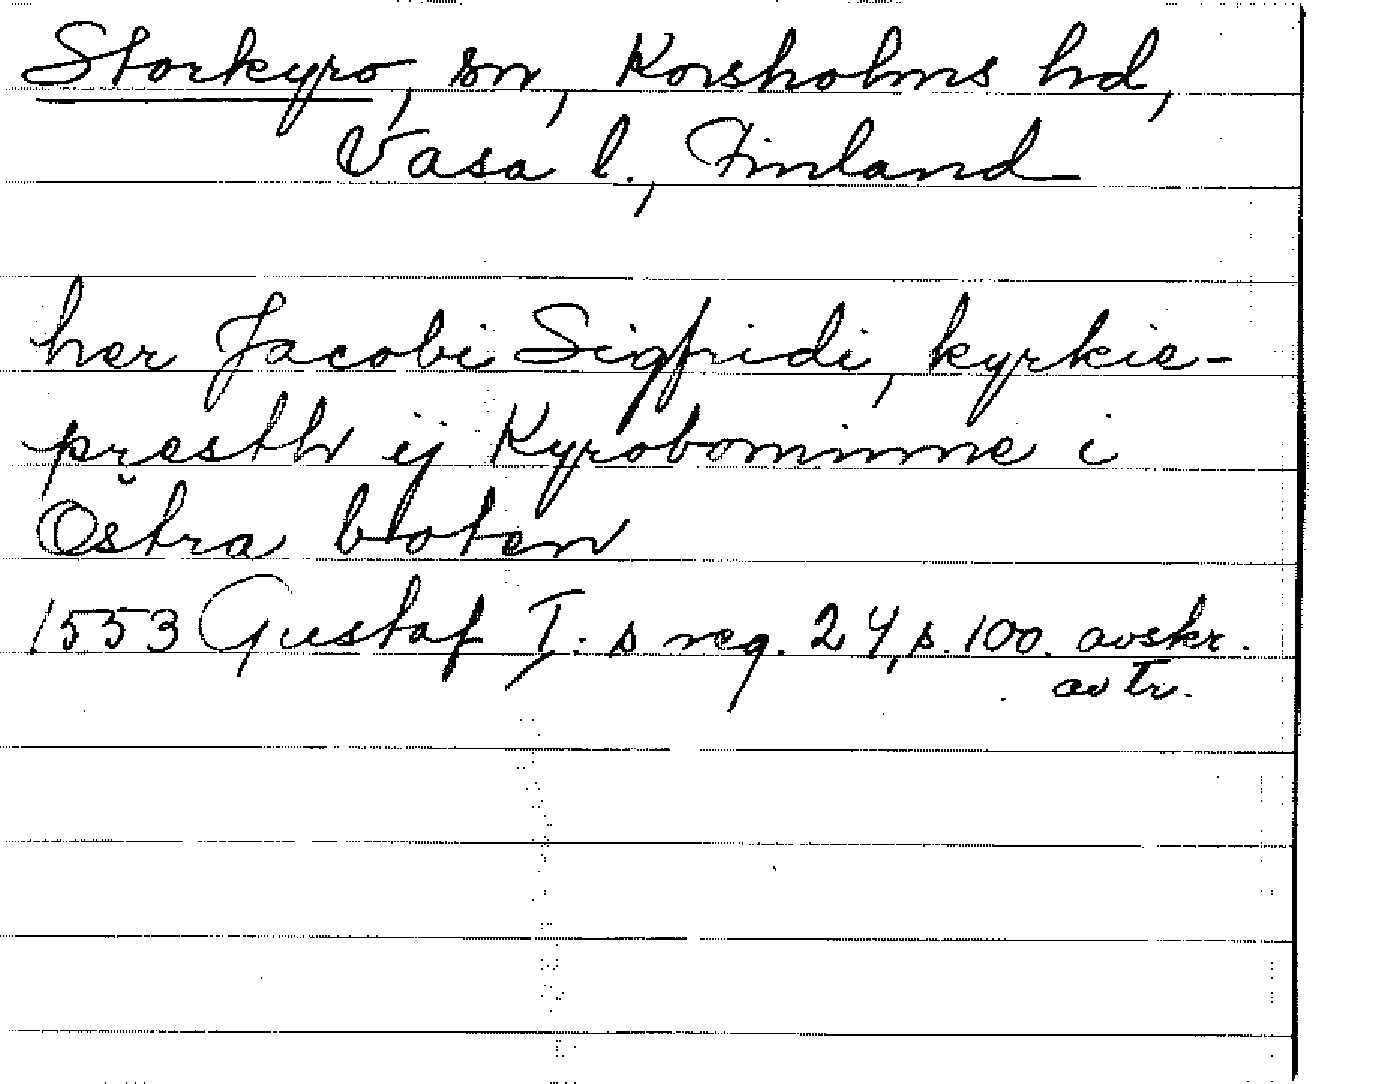 Storkyro, sn, Korsholms hd,
Vasa l., Finland
her Jacobi Sigfridi, kyrkie-
presth ij Kyrobominne i
Östra boten
1553 Gustaf I: s reg. 24, s. 100. avskr.
av tr.